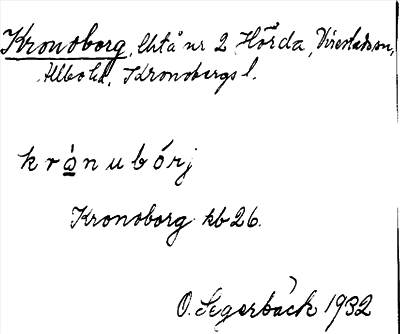 Kronoborg, lht å nr 2 Hörda, Virestads sn,
Allbo hd, Kronobergs l.
krǫ̀nubórj
Kronoborg kb 26.
O. Segerbäck 1932